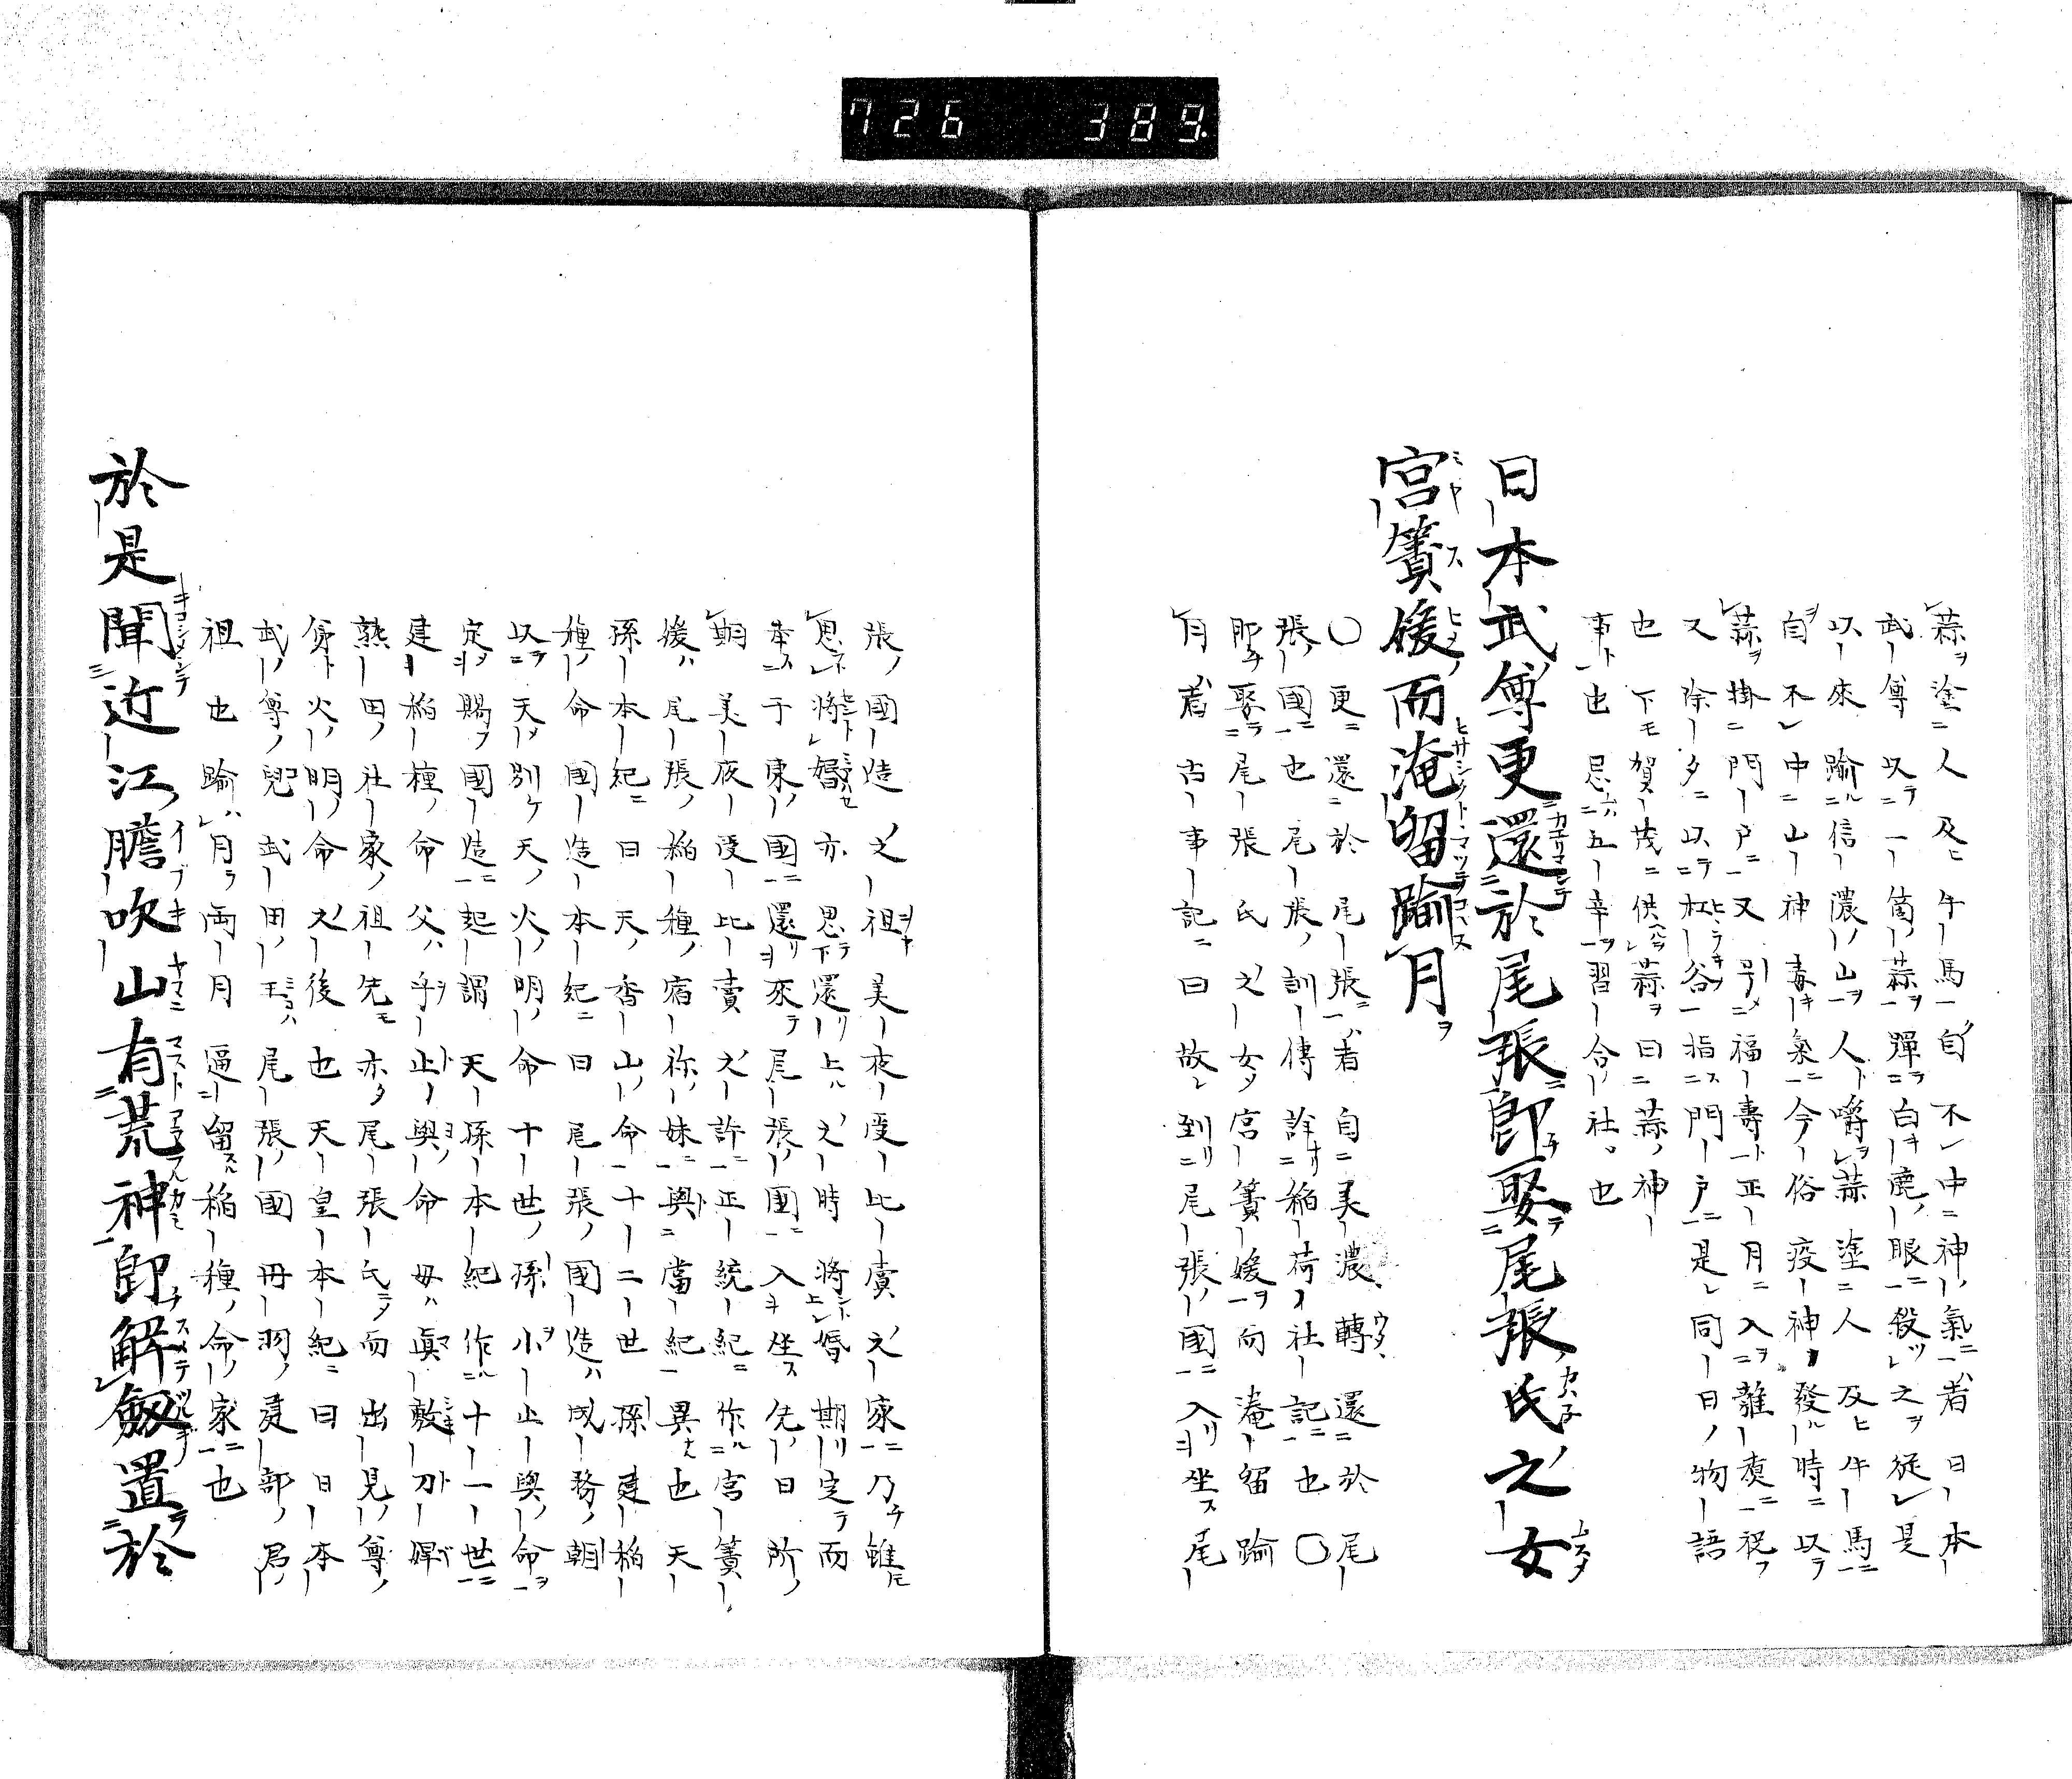 726 389.
蒜塗人及牛馬自不中神氣者日本
武尊以一箇蒜彈白鹿眼殺之從是
以來踰信濃山人嚼蒜塗人及牛馬
自不中山神毒氣今俗疫神發時以
蒜掛門戶又号福壽正月入雜煑祝
又除夕以杠谷指門戶是同日物語
也下賀茂供蒜曰蒜神
事也忌五辛習合社也
日本武尊更還於尾張即娶尾張氏之女
宮簀媛而淹留踰月
〇更還於尾張者自美濃轉還於尾
張國也尾張訓傳詳稲荷社記也〇
即娶尾張氏之女宮簀媛而淹留踰
月者古事記曰故到尾張國入坐尾
張國造之祖美夜受比賣之家乃雖
思將婚亦思還上之時將婚期定而
幸于東國還來尾張國入坐先日所
期美夜受比賣之許正統紀作宮簀
媛尾張稲種宿祢妹與當紀異也天
孫本紀曰天香山命十二世孫建稲
種命國造本紀曰尾張國造成務朝
以天別天火明命十世孫小止與命
定賜國造起謂天孫本紀作十一世
建稲種命父乎止與命母眞敷刀婢
熱田社家祖先亦尾張氏而出見尊
第火明命之後也天皇本紀曰日本
武尊兒武田王尾張國丹羽建部君
祖也踰月兩月逼留稲種命家也
於是聞近江膽吹山有荒神即解劔置於